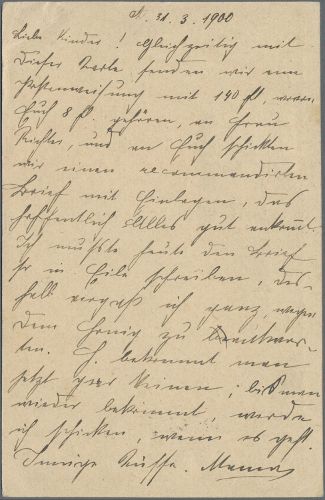 N. 31. 3. 1900
Liebe Kinder! Gleichzeitig mit
dieser Karte senden wir eine
Postanweisung mit 140 fl, wovon
Euch 8 fl. gehören, an Frau
Richter, und an Euch schicken
wir einen recommandirten
Brief mit Einlagen, das
hoffentlich Alles gut ankommt.
Ich mußte heute den Brief
so in Eile schreiben, des-
halb vergaß ich ganz, wegen
dem Honig zu beantwor-
ten. H. bekommt man
jetzt gar keinen; bis man
wieder bekommt, werde
ich schicken, wenn es geht.
Innige Küsse. Mama